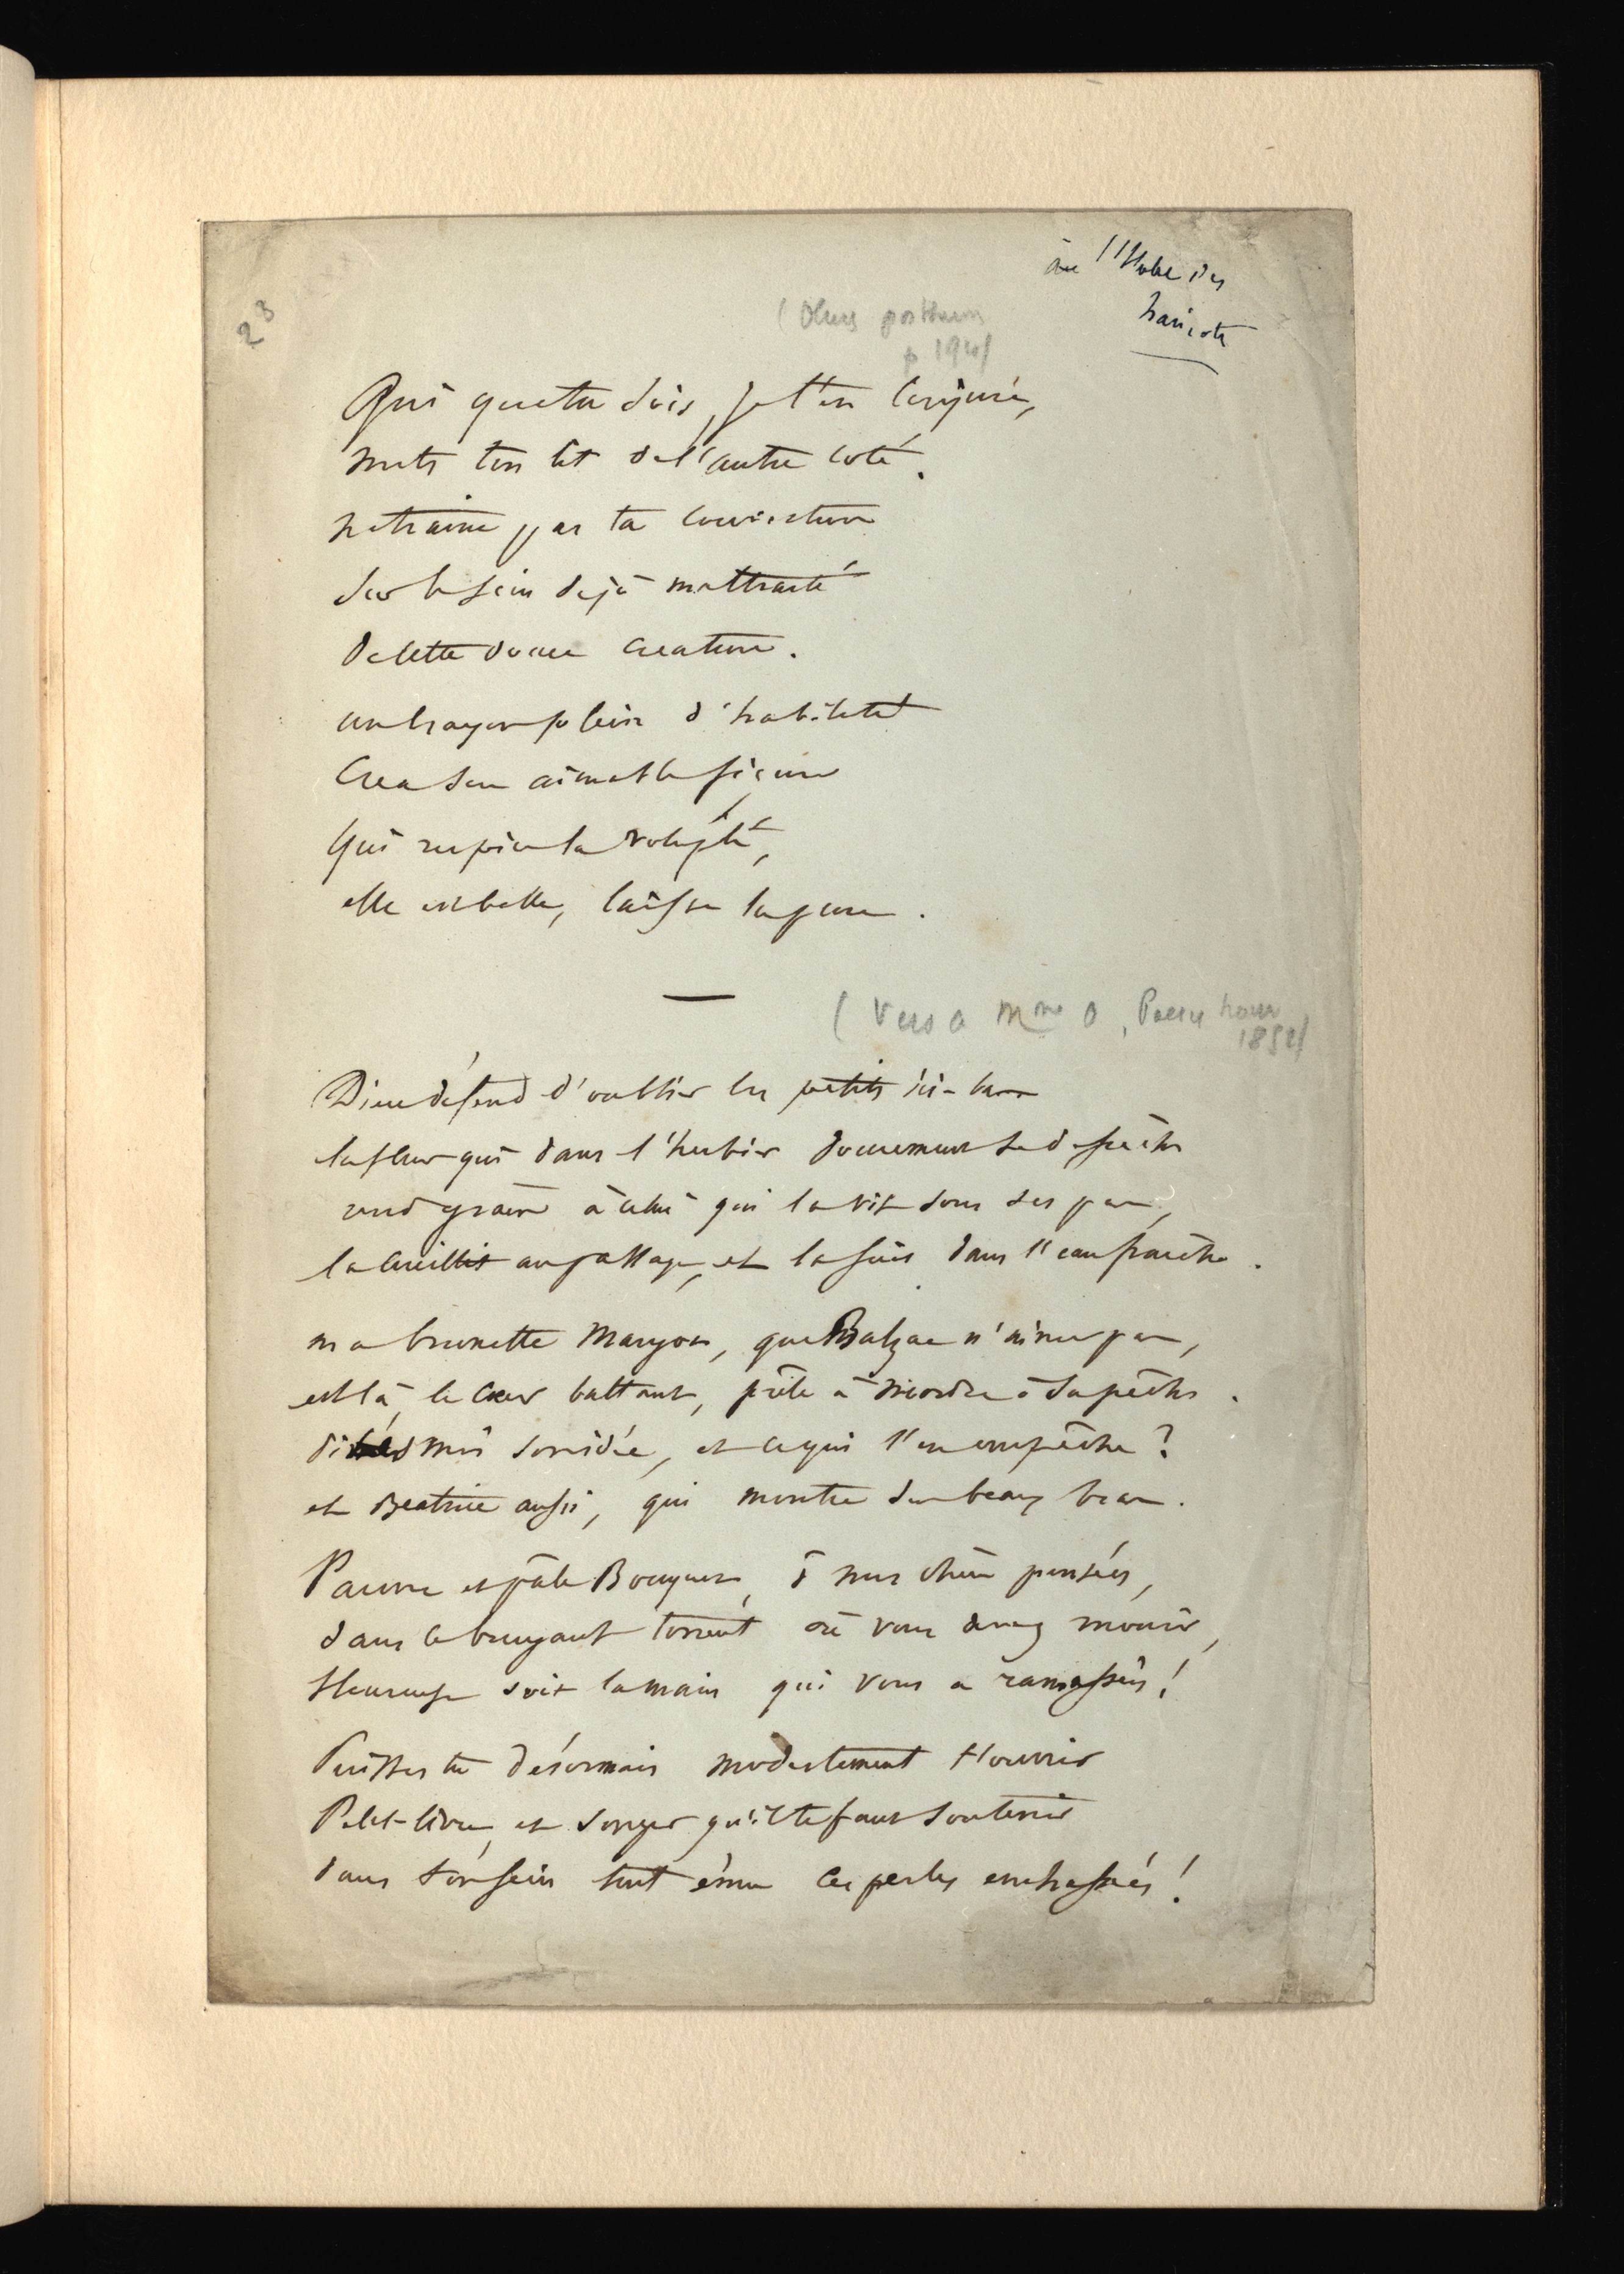 23
à l'Hotel des
haricots
(Œuvres posthumes
p 194)
Qui que tu sois, je t'en conjure,
mets ton lit de l'autre coté.
ne traine pas ta couverture
sur le sein dejà maltraité
de cette douce creature.
un crayon plein d'habileté
Crea son aimable figure
qui respire la volupté,
elle est belle, laisse la pure.
—
(Vers a Mme O, Poesies nouv
1852)
Dieu défend d'oublier les petits ici-bas
la fleur qui dans l'herbier doucement se desseche
rend grace à celui qui la vit sous ses pas,
la cueillit au passage, et la suit dans l'eau fraiche.
ma brunette Margot, que Balzac n'aime pas,
est là, le cœur battant, prète à mordre à sa pêche.
dites moi son idée, et ce qui l'en empêche?
et Beatrice aussi, qui montre son beau bras.
Pauvre et pâle Bouquet, ô mes chères pensées,
dans ce bruyant torrent où vous devez mourir,
Heureuse soit la main qui vous a ramassées!
Puisses tu désormais modestement t'ouvrir
Petit-livre, et songer qu'il te faut soutenir
dans ton sein tout ému ces perles enchassées!